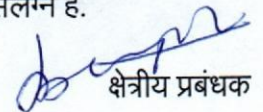 संलग्न है.
क्षेत्रीय प्रबंधक